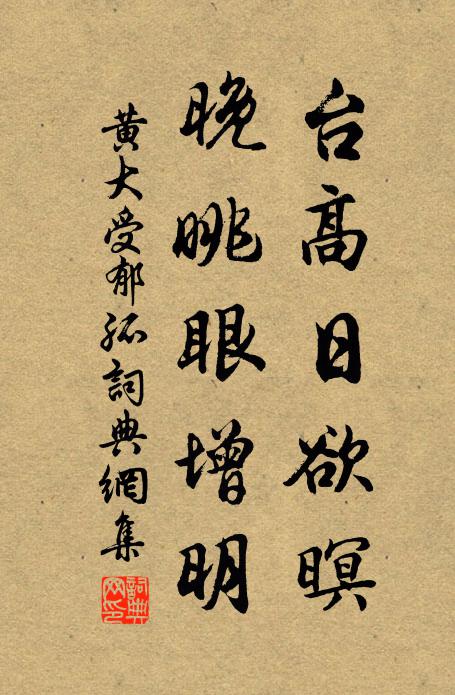 台高日欲暝
晚眺眼增明
黃大受郁孤詞典網集
詞典網印